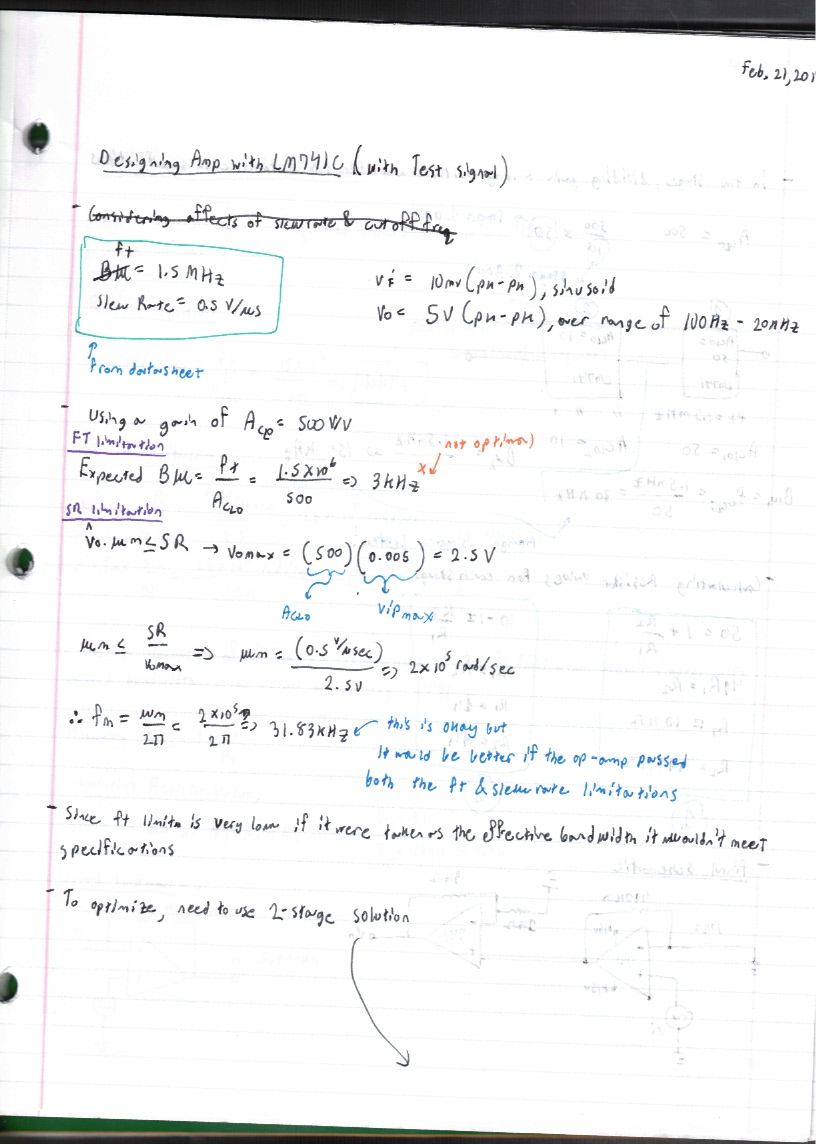 Feb. 21, 201
Designing Amp with LM741C (with Test signal)
- Considering affects of slew rate & cutoff freq
ft
BW = 1.5 MHz
Slew Rate = 0.5 V/μs
from datasheet
Vi = 10mv (pk-pk), sinusoid
Vo = 5V (pk-pk), over range of 100Hz - 20kHz
- Using a gain of = 500 V/V
FT limitation
Expected BW = ft/ACLO = 1.5x10⁶/500 => 3kHz x not optimal
SR limitation
V̂o.ωm ≤ SR → Vomax = (500)(0.005) = 2.5V
ACLO Vipmax
ωm ≤ SR/Vomax => ωm = (0.5 V/μsec)/2.5V => 2x10⁵ rad/sec
∴ fm = ωm/2π = 2x10⁵/2π => 31.83kHz ← this is okay but
it would be better if the op-amp passed
both the ft & slew rate limitations
- Since ft limit is very low if it were taken as the effective bandwidth it wouldn't meet
specifications
- To optimize, need to use 2-stage solution